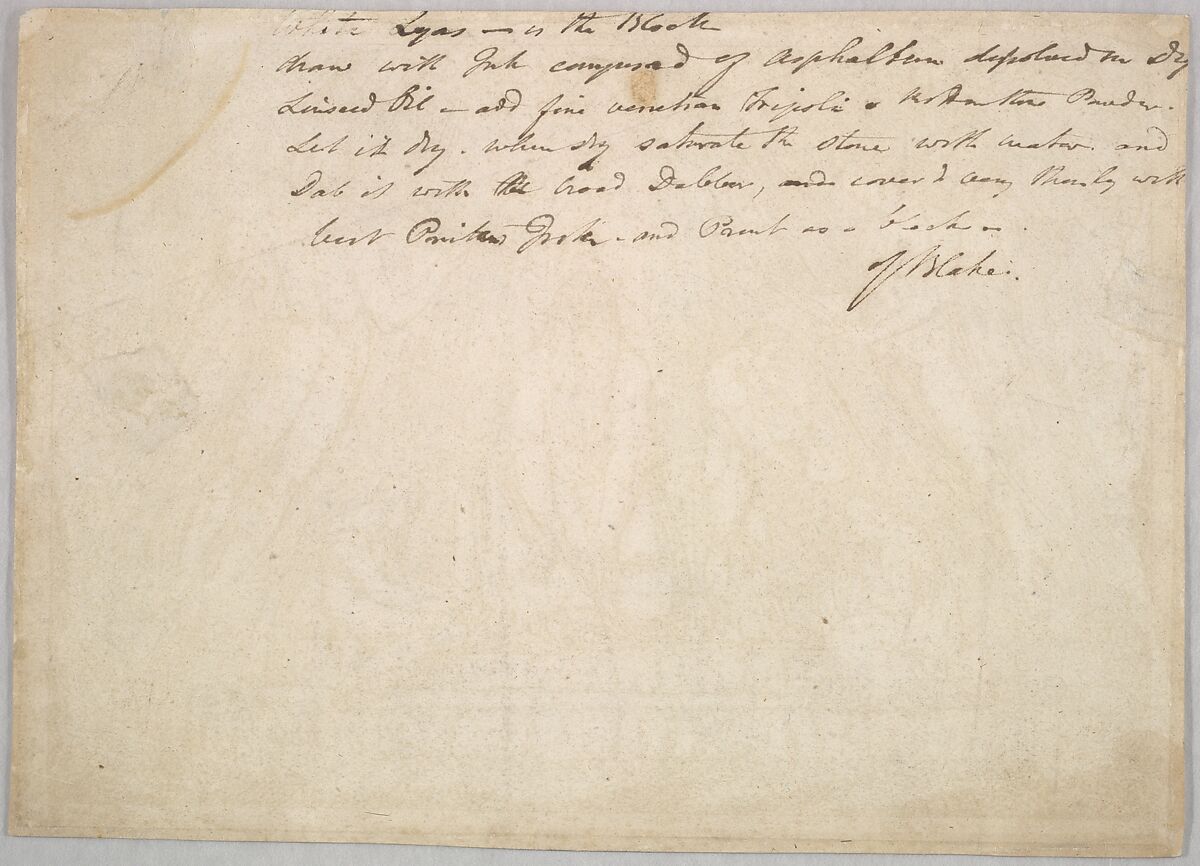 White Lyas — is the Block
draw with Ink composed of Asphaltum dissolved in Dry
Linseed Oil — add fine venetian Tripoli & Rotten Stone Powder.
Let it dry. when dry saturate the stone with water and
Dab it with the broad Dabber, and cover it very thinly with
best Printers Ink — and Print as a block —.
of Blake.